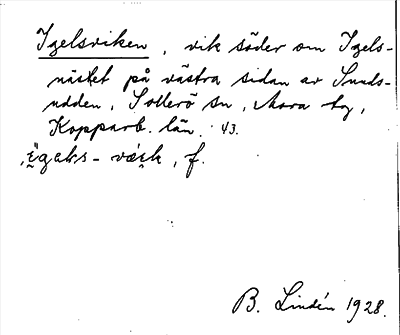 Igelsviken, vik söder om Igels-
näset på västra sidan av Sunds-
udden, Sollerö sn, Mora tg,
Kopparb. län. 43.
f.
B. Lindén 1928.